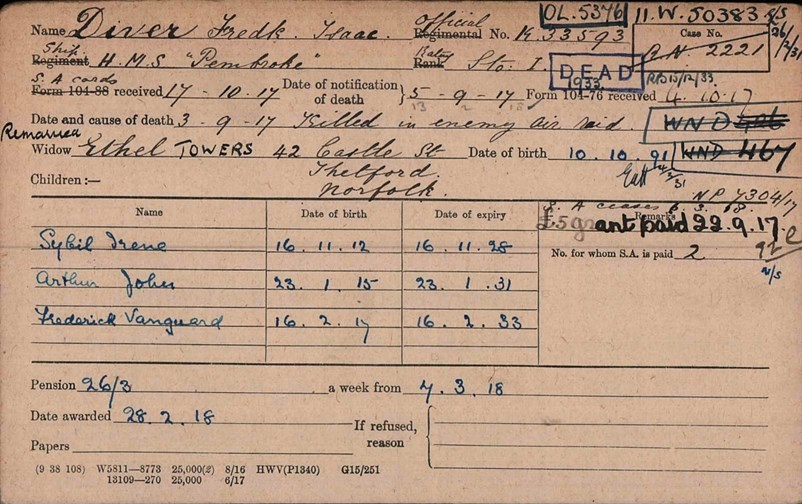 OL.5376 11.W.50383 2/5 26/2/31
Name Diver Fredk. Isaac. Official Regimental No. K.33593 Case No. 2221
Ship. Regiment H.M.S "Pembroke" Rating Rank Sto: I. DEAD 1933 RB15/12/33.
S. A cards Form 104-88 received 17 - 10 - 17 Date of notification of death } 5 - 9 - 17 Form 104-76 received 4. 10. 17
13 2 18
Date and cause of death 3 - 9 - 17 Killed in enemy air raid. WND
Remarried
Widow Ethel TOWERS 42 Castle St Date of birth 10. 10. 91 WND 467
Thetford.
Children :— Norfolk. NP 7304/17
S. A ceases 6. 3. 18.
Name Date of birth Date of expiry Remarks
£5 grant paid 22.9.17.
Sybil Irene 16. 11. 12 16. 11. 28 No. for whom S.A. is paid 2
Arthur John 23. 1. 15 23. 1. 31
Frederick Vanguard 16. 2. 17 16. 2. 33
Pension 26/3 a week from 7. 3. 18
Date awarded 28. 2. 18 If refused, reason
Papers
(9 38 108) W5811—8773 25,000(2) 8/16 HWV(P1340) G15/251
13109—270 25,000 6/17